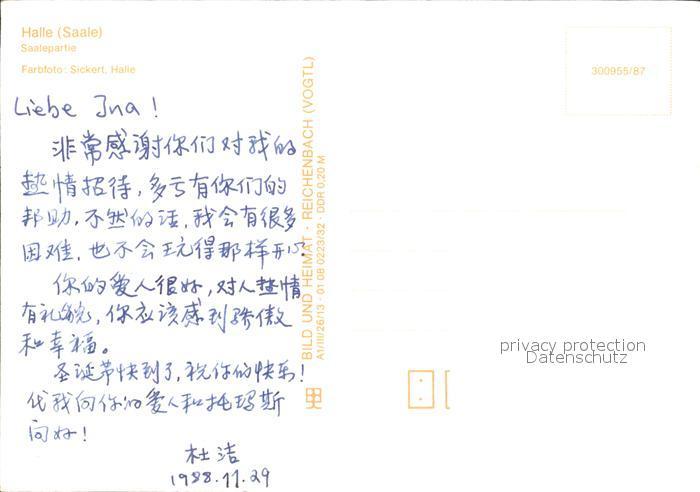 Halle (Saale)
Saalepartie
Farbfoto: Sickert, Halle
Liebe Ina!
非常感谢你们对我的
热情招待，多亏有你们的
帮助，不然的话，我会有很多
困难，也不会玩得那样开心。
你的爱人很好，对人热情
有礼貌，你应该感到骄傲
和幸福。
圣诞节快到了，祝你的快乐！
代我向你的爱人和托玛斯
问好！
杜洁
1988.11.29
BILD UND HEIMAT · REICHENBACH (VOGTL)
A1/III/26/13 · 01 08 0223/32 · DDR 0,20 M
300955/87
privacy protection
Datenschutz